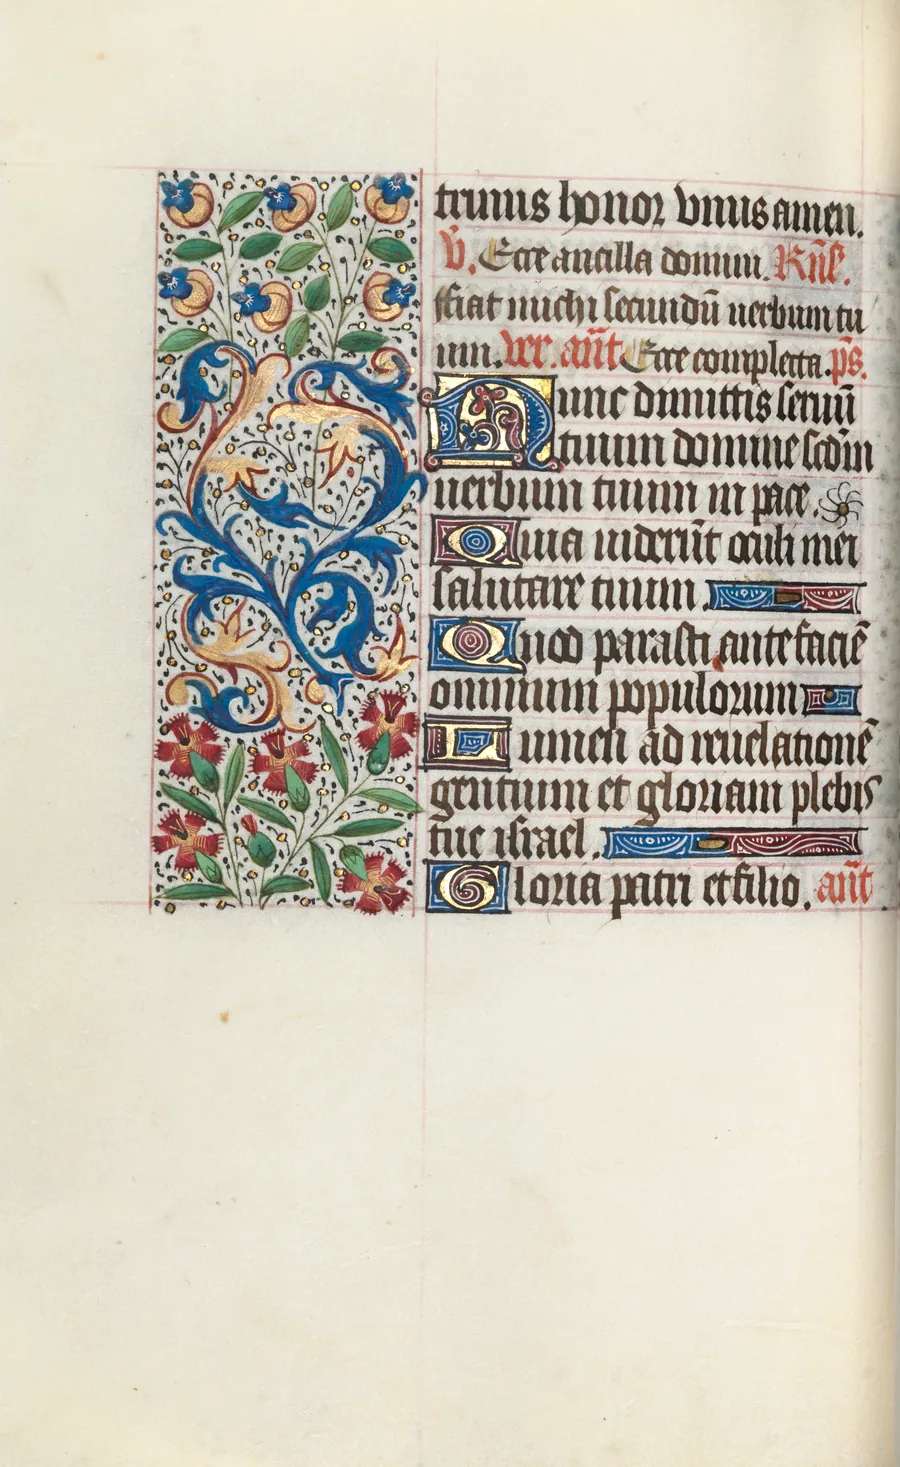 trinus honor vnus amen.
v̄. Ecce ancilla domini. Rn̄s̄.
ffiat michi secundū uerbum tu
um. ver. an̄t Ecce completa. p̄s.
Nunc dimittis seruū
tuum domine scd̄m
uerbum tuum in pace.
Quia uiderūt oculi mei
salutare tuum.
Quod parasti ante faciē
omnium populorum
Lumen ad reuelationē
gentium et gloriam plebis
tue israel.
Gloria patri et filio. an̄t